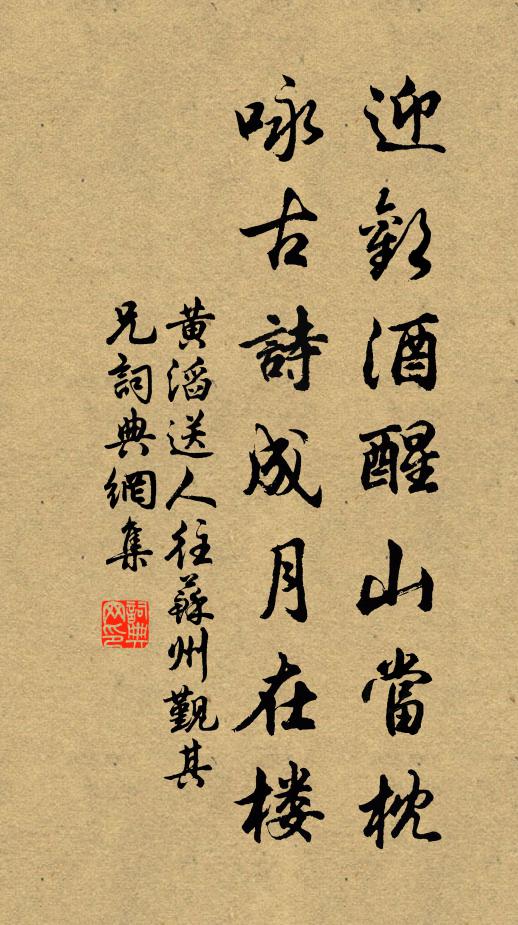 迎歡酒醒山當枕
咏古詩成月在楼
黃滔送人往蘇州覲其
兄詞典網集
詞典
网印